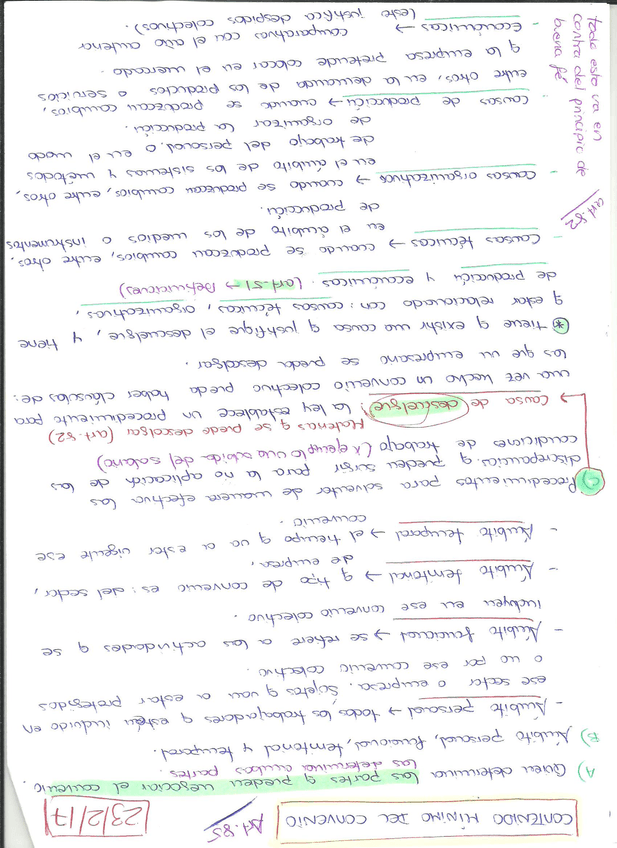 CONTENIDO MÍNIMO DEL CONVENIO
Art. 85
23/2/17
A) Quien determina las partes q pueden negociar el convenio.
las determina ambas partes.
B) Ámbito personal, funcional, territorial y temporal.
- Ámbito personal → todos los trabajadores q estén incluido en
ese sector o empresa. Sujetos q van a estar protegidos
o no por ese convenio colectivo.
- Ámbito funcional → se refiere a las actividades q se
incluyen en ese convenio colectivo.
- Ámbito territorial → q tipo de convenio es: del sector,
de empresa.
- Ámbito temporal → el tiempo q va a estar vigente ese
convenio.
C) Procedimientos para solventar de manera efectiva las
discrepancias q pueden surgir para la no aplicación de las
condiciones de trabajo (x ejemplo una subida del salario)
Materias q se puede descolgar (art. 82)
→ Causa de descuelgue: la ley establece un procedimiento para
una vez hecho un convenio colectivo pueda haber cláusulas de:
las que un empresario se pueda descolgar.
* Tiene q existir una causa q justifique el descuelgue, y tiene
q estar relacionado con: causas técnicas, organizativas,
de producción y económicas. (art. 51 → Definiciones)
- Causas técnicas → cuando se produzcan cambios, entre otros,
en el ámbito de los medios o instrumentos
de producción.
- Causas organizativas → cuando se produzcan cambios, entre otros,
en el ámbito de los sistemas y métodos
de trabajo del personal o en el modo
de organizar la producción.
- Causas de producción → cuando se produzcan cambios,
entre otros, en la demanda de los productos o servicios
q la empresa pretende colocar en el mercado.
- Económicas → comparativas con el año anterior
(esto justifica despidos colectivos).
art. 82
todo esto va en
contra del principio de
buena fé